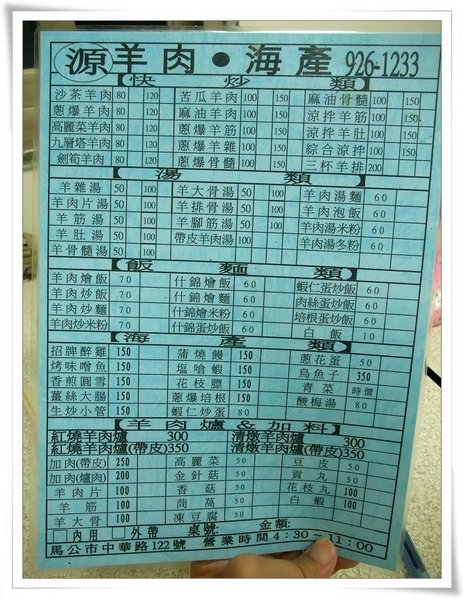 源 羊肉•海產 926-1233
【快炒類】
沙茶羊肉 80 120 苦瓜羊肉 100 150 麻油骨髓 100 150
蔥爆羊肉 80 120 麻油羊肉 100 150 涼拌羊筋 100 150
高麗菜羊肉 80 120 蔥爆羊筋 100 150 涼拌羊肚 100 150
九層塔羊肉 80 120 蔥爆羊雜 100 150 綜合涼拌 100 150
劍筍羊肉 80 120 蔥爆骨髓 100 150 三杯羊排 200
【湯類】
羊雜湯 50 100 羊大骨湯 50 100 羊肉湯麵 60
羊肉片湯 50 100 羊排骨湯 50 100 羊肉泡飯 60
羊筋湯 50 100 羊腳筋湯 50 100 羊肉湯米粉 60
羊肚湯 50 100 帶皮羊肉湯 50 100 羊肉湯冬粉 60
羊骨髓湯 50 100
【飯麵類】
羊肉燴飯 70 什錦燴飯 60 蝦仁蛋炒飯 60
羊肉炒飯 70 什錦燴麵 60 肉絲蛋炒飯 50
羊肉炒麵 70 什錦燴米粉 60 培根蛋炒飯 50
羊肉炒米粉 70 什錦蛋炒飯 60 白飯 10
【海產類】
招牌醉雞 150 蒲燒鰻 150 蔥花蛋 50
烤味噌魚 150 塩嗆蝦 150 烏魚子 350
香煎圓雪 150 花枝膘 150 青菜 時價
薑絲大腸 150 蔥爆培根 150 酸梅湯 80
生炒小管 150 蝦仁炒蛋 80
【羊肉爐&加料】
紅燒羊肉爐 300 清燉羊肉爐 300
紅燒羊肉爐(帶皮)350 清燉羊肉爐(帶皮)350
加肉(帶皮) 250 高麗菜 50 豆皮 50
加肉(爐肉) 200 金針菇 50 貢丸 50
羊肉片 100 香菇 50 花枝丸 100
羊筋 100 茼萵 50 白蝦 100
羊大骨 100 凍豆腐 50
□內用 □外帶 桌號: 金額:
馬公市中華路122號 營業時間4:30~11:00